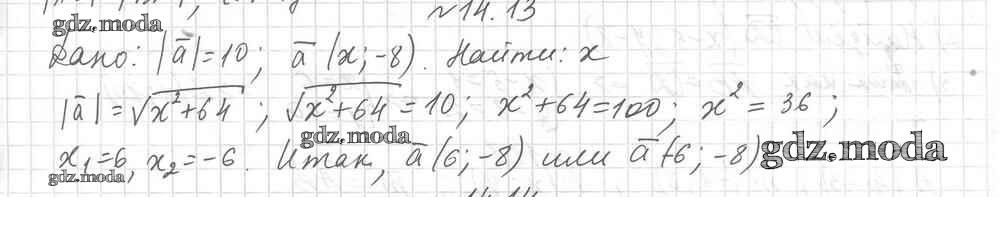 №14.13
gdz.moda
Дано: |a̅|=10; a̅ (x; -8). Найти: x
|a̅| = √x²+64 ; √x²+64 = 10; x²+64=100; x² = 36;
gdz.moda
x₁=6, x₂=-6. Итак, a̅ (6; -8) или a̅ (-6; -8)
gdz.moda
gdz.moda